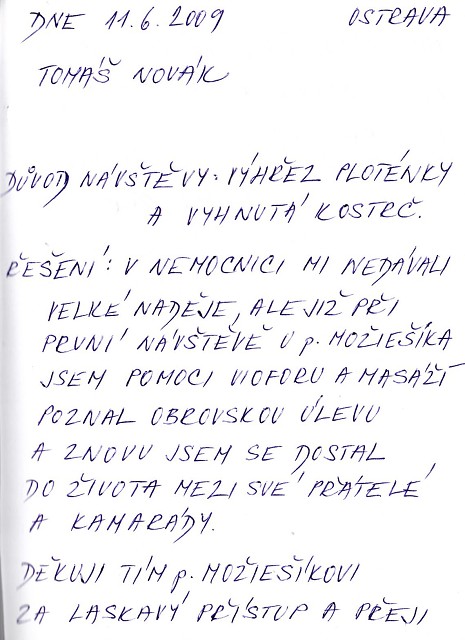 DNE 11.6.2009 OSTRAVA
TOMÁŠ NOVÁK
DŮVOD NÁVŠTĚVY: VÝHŘEZ PLOTÉNKY
A VYHNUTÁ KOSTRČ.
ŘEŠENÍ: V NEMOCNICI MI NEDÁVALI
VELKÉ NADĚJE, ALE JIŽ PŘI
PRVNÍ NÁVŠTĚVĚ U p. MOŽIEŠÍKA
JSEM POMOCI VIOFORU A MASÁŽÍ
POZNAL OBROVSKOU ÚLEVU
A ZNOVU JSEM SE DOSTAL
DO ŽIVOTA MEZI SVÉ PŘÁTELÉ
A KAMARÁDY.
DĚKUJI TÍM p. MOŽIEŠÍKOVI
ZA LASKAVÝ PŘÍSTUP A PŘEJI